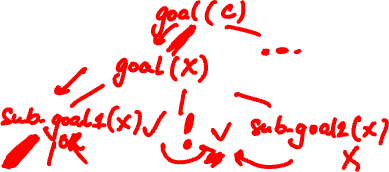 goal(C)
...
goal(X)
sub-goal1(X) ! sub-goal2(X)
OR